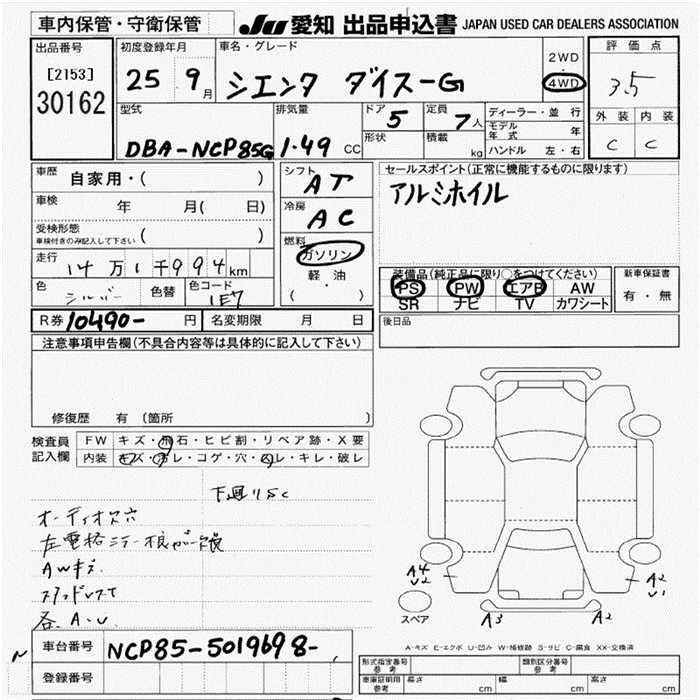 車内保管・守衛保管
JU 愛知 出品申込書 JAPAN USED CAR DEALERS ASSOCIATION
出品番号
[2153]
30162
初度登録年月
25 9月
車名・グレード
シエンタ ダイス-G
2WD
4WD
評価点
3.5
外装 内装
C C
型式
DBA-NCP85G
排気量
1.49 CC
ドア
5
形状
定員
7人
積載
kg
ディーラー・並行
モデル年式 年
ハンドル 左・右
車歴
自家用・( )
車検
年 月( 日)
受検形態
車検付きのみ記入して下さい ( )
走行
14万1千994km
色
シルバー
色替
色コード
1E7
シフト
AT
冷房
AC
燃料
ガソリン
軽油
( ・ )
セールスポイント(正常に機能するものに限ります)
アルミホイル
装備品(純正品に限り○をつけてください)
PS PW エアB AW
SR ナビ TV カワシート
新車保証書
有・無
R券 10490- 円
名変期限 月 日
後日品
注意事項申告欄(不具合内容等は具体的に記入して下さい)
修復歴 有 〔箇所
検査員
記入欄
FW キズ・飛石・ヒビ割・リペア跡・X要
内装 キズ・汚レ・コゲ・穴・スレ・キレ・破レ
下廻りSC
オーディオ欠
AWキズ
スタッドレス
各A.U.
A4
U2
スペア
A3
A2
A2
U1
A-キズ E-エクボ U-凹み W-補修跡 S-サビ C-腐食 XX-交換済
車台番号
NCP85-5019698-
登録番号
形式指定番号
参考
類別区分番号
参考
車庫証明用
参考
長さ cm
幅 cm
高さ cm